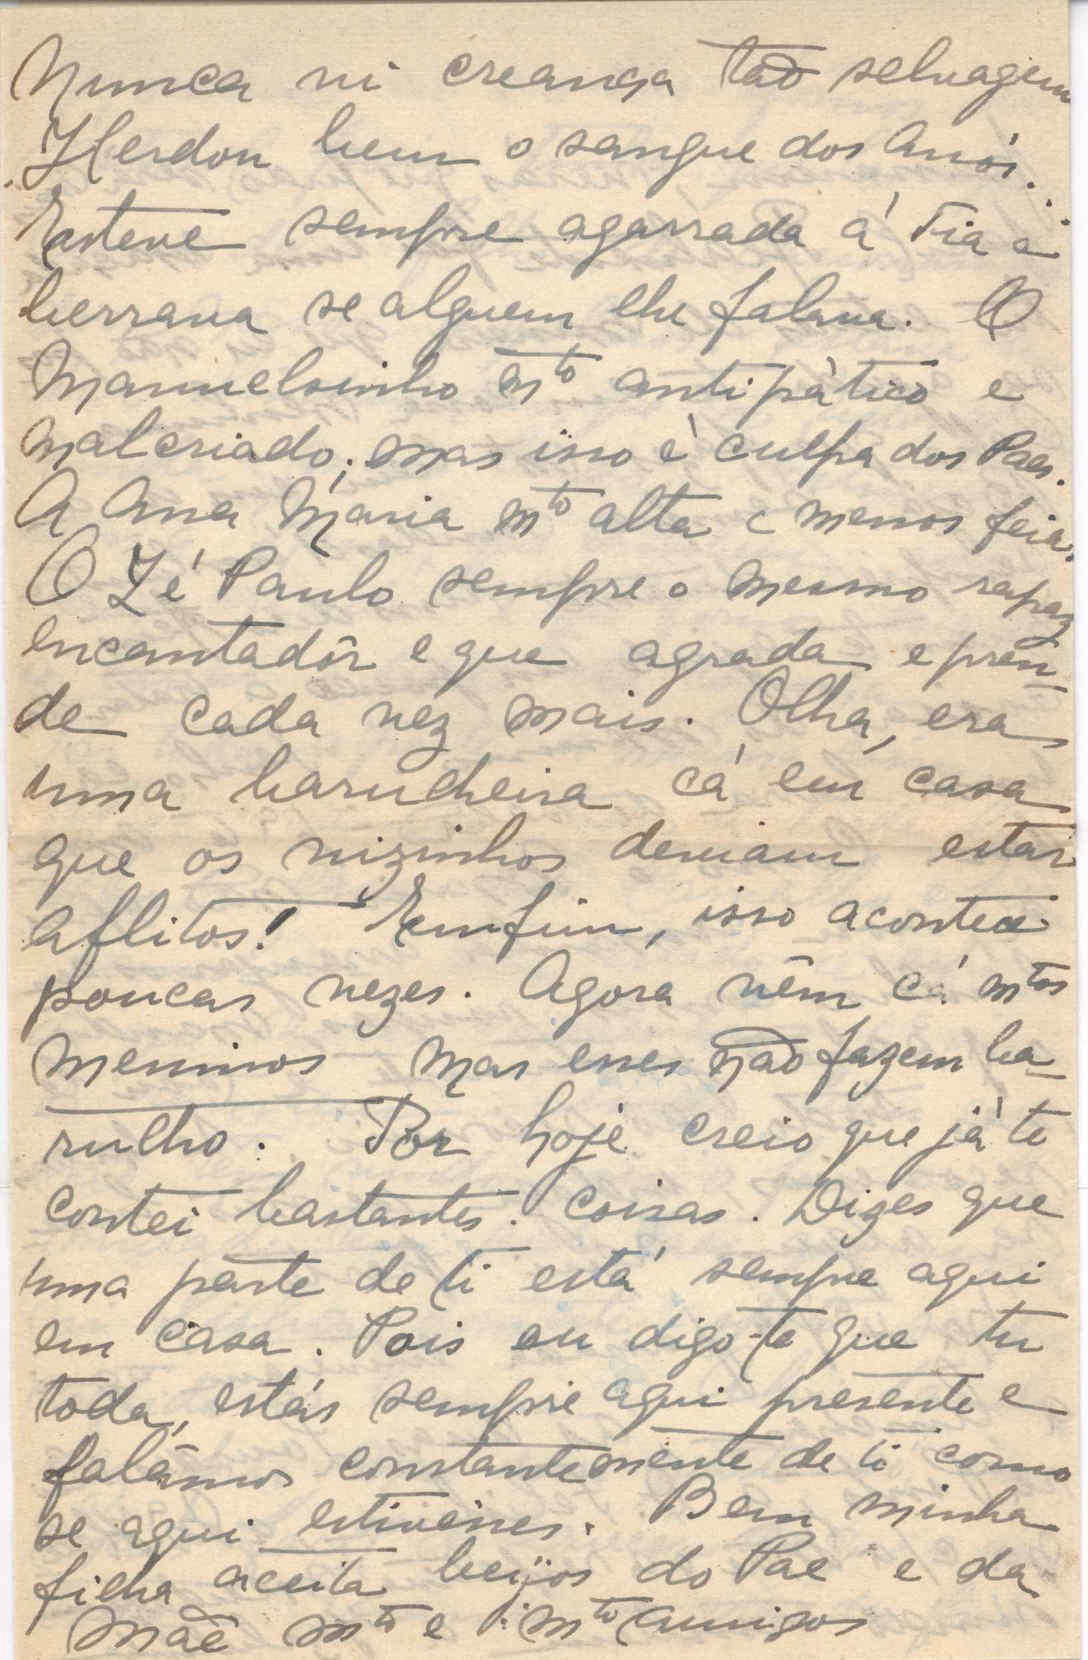 Nunca vi creança tão selvagem
Herdou bem o sangue dos Avós...
Esteve sempre agarrada á Tia e
berrava se alguem lhe falava. O
Manuelsinho mto antipàtico e
malcriado, mas isso é culpa dos Paes.
A Ana Maria mto alta e menos feia.
O Zé Paulo sempre o mesmo rapaz
encantadôr e que agrada e pren-
de cada vez mais. Olha, era
uma barulheira cá em casa
que os vizinhos deviam estar
aflitos! Emfim, isso acontece
poucas vezes. Agora vêm cá mtos
meninos mas esses não fazem ba-
rulho. Por hoje creio que já te
contei bastantes coisas. Dizes que
uma parte de ti está sempre aqui
em casa. Pois eu digo-te que tu
toda, estás sempre aqui presente e
falâmos constantemente de ti como
se aqui estivesses. Bem minha
filha aceita beijos do Pae e da
Mãe mto e mto amigos